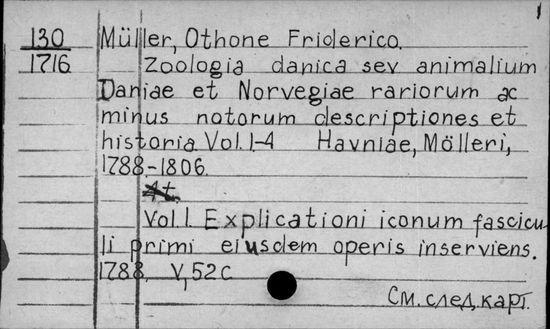 1
130 Müller, Othone Friderico.
1716 Zoologia danica sev animalium
Daniae et Norvegiae rariorum ac
minus notorum descriptiones et
historia Vol. 1-4 Havniae, Mölleri,
1788.-1806.
4t.
Vol. 1. Explicationi iconum fascicu-
li primi eiusdem operis inserviens.
1788. V, 52 c
См. след. карт.